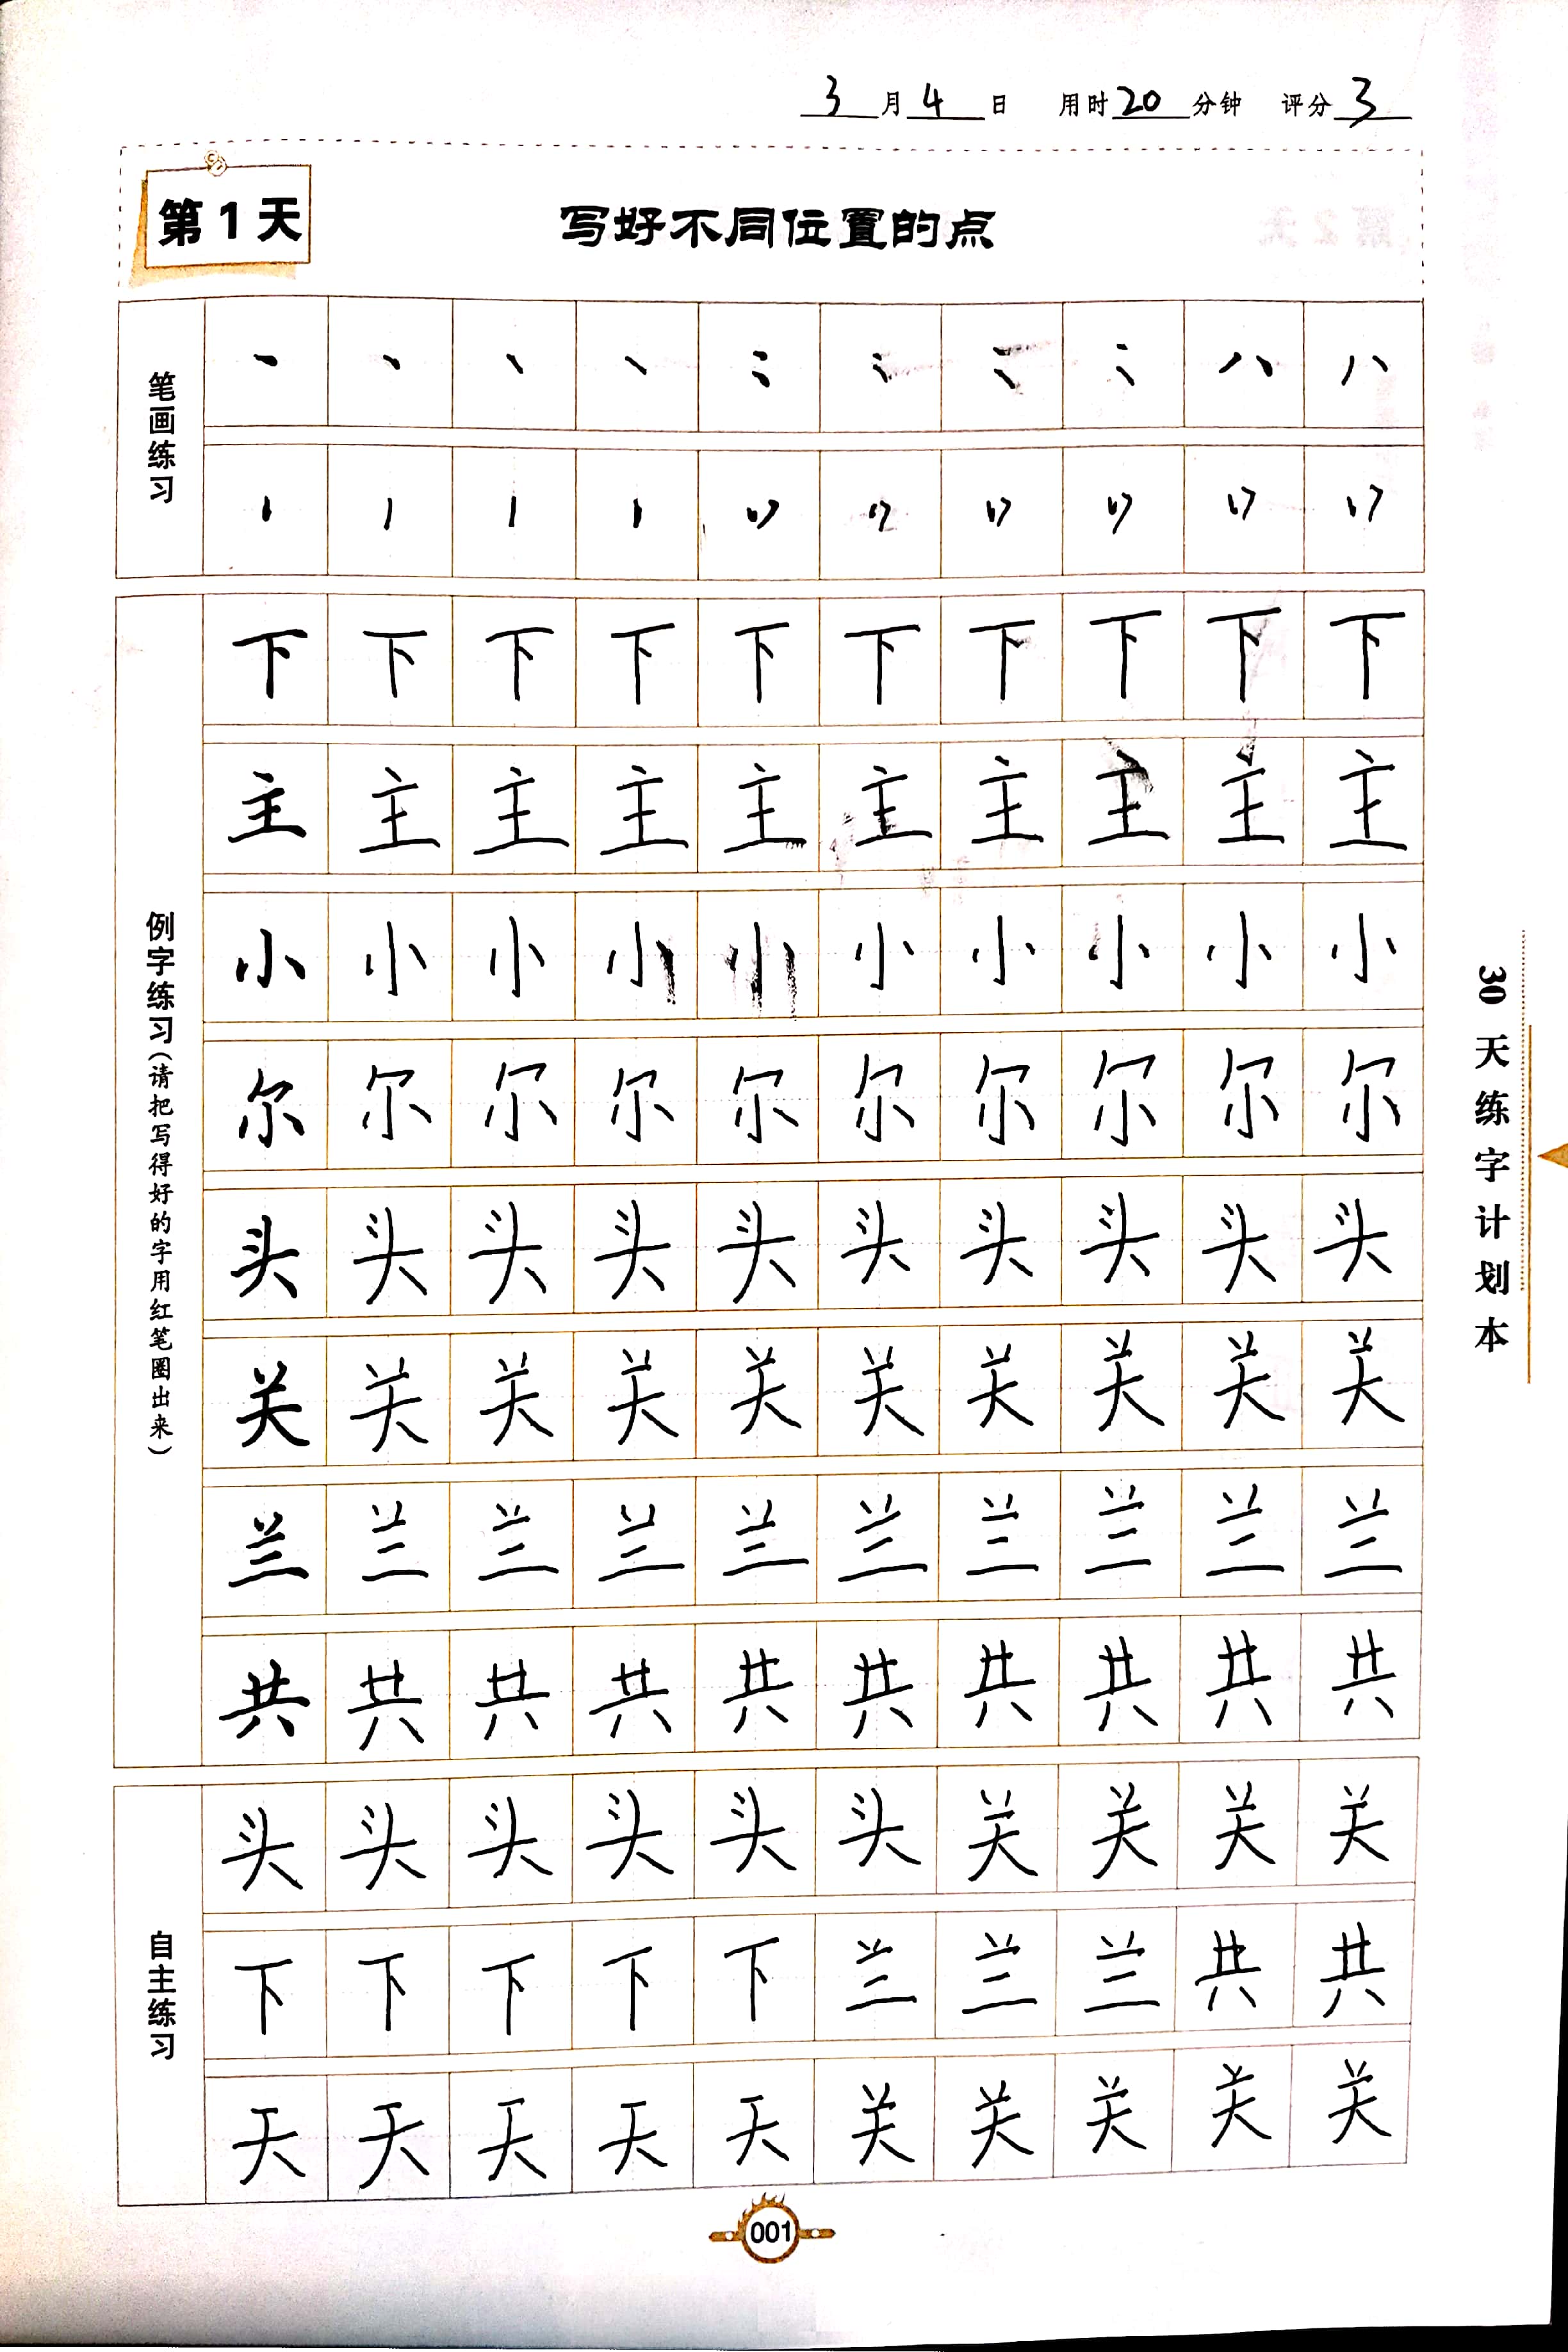 3月4日 用时20分钟 评分3
第1天
写好不同位置的点
笔画练习
例字练习(请把写得好的字用红笔圈出来)
下下下下下下下下下下
主主主主主主主主主主
小小小小小小小小小小
尔尔尔尔尔尔尔尔尔尔
头头头头头头头头头头
关关关关关关关关关关
兰兰兰兰兰兰兰兰兰兰
共共共共共共共共共共
自主练习
头头头头头头关关关关
下下下下下兰兰兰共共
天天天天天关关关关关
30天练字计划本
001